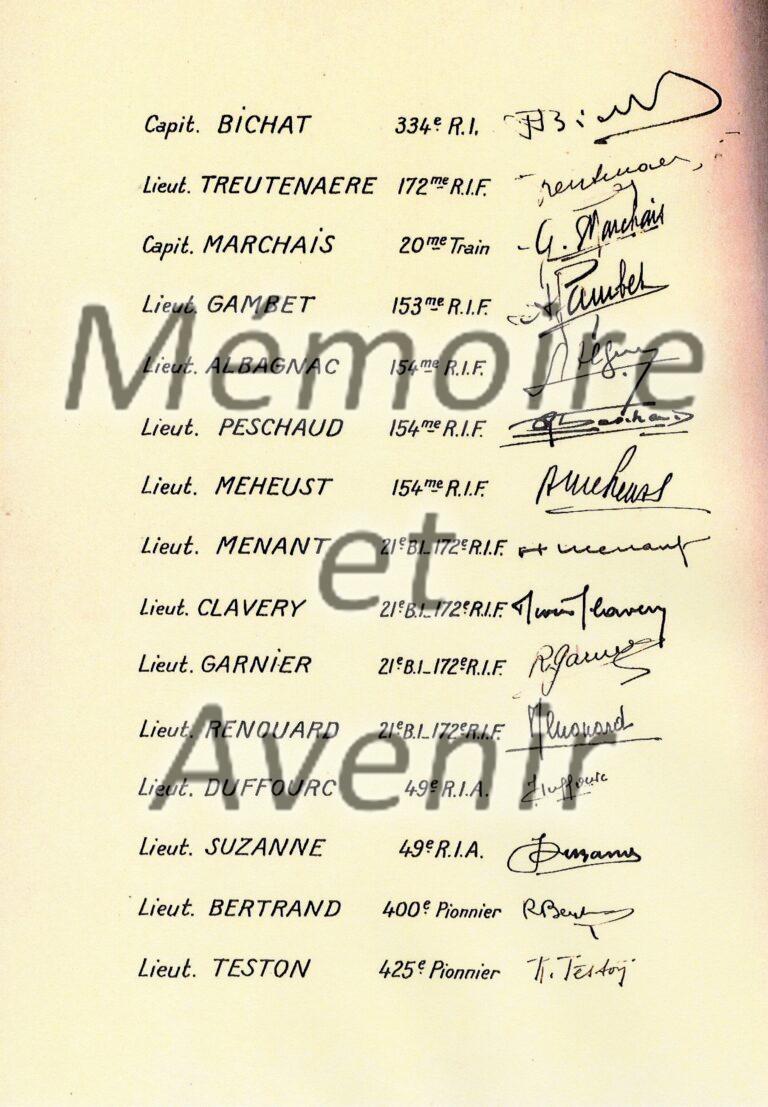 Capit. BICHAT 334e R.I.
Lieut. TREUTENAERE 172me R.I.F.
Capit. MARCHAIS 20me Train G. Marchais
Lieut. GAMBET 153me R.I.F. Gambet
Mémoire
Lieut. ALBAGNAC 154me R.I.F.
Lieut. PESCHAUD 154me R.I.F.
Lieut. MEHEUST 154me R.I.F.
Lieut. MENANT 21e B.I_172e R.I.F. menant
et
Lieut. CLAVERY 21e B.I_172e R.I.F. Clavery
Lieut. GARNIER 21e B.I_172e R.I.F.
Lieut. RENOUARD 21e B.I_172e R.I.F.
Avenir
Lieut. DUFFOURC 49e R.I.A. Duffourc
Lieut. SUZANNE 49e R.I.A.
Lieut. BERTRAND 400e Pionnier
Lieut. TESTON 425e Pionnier